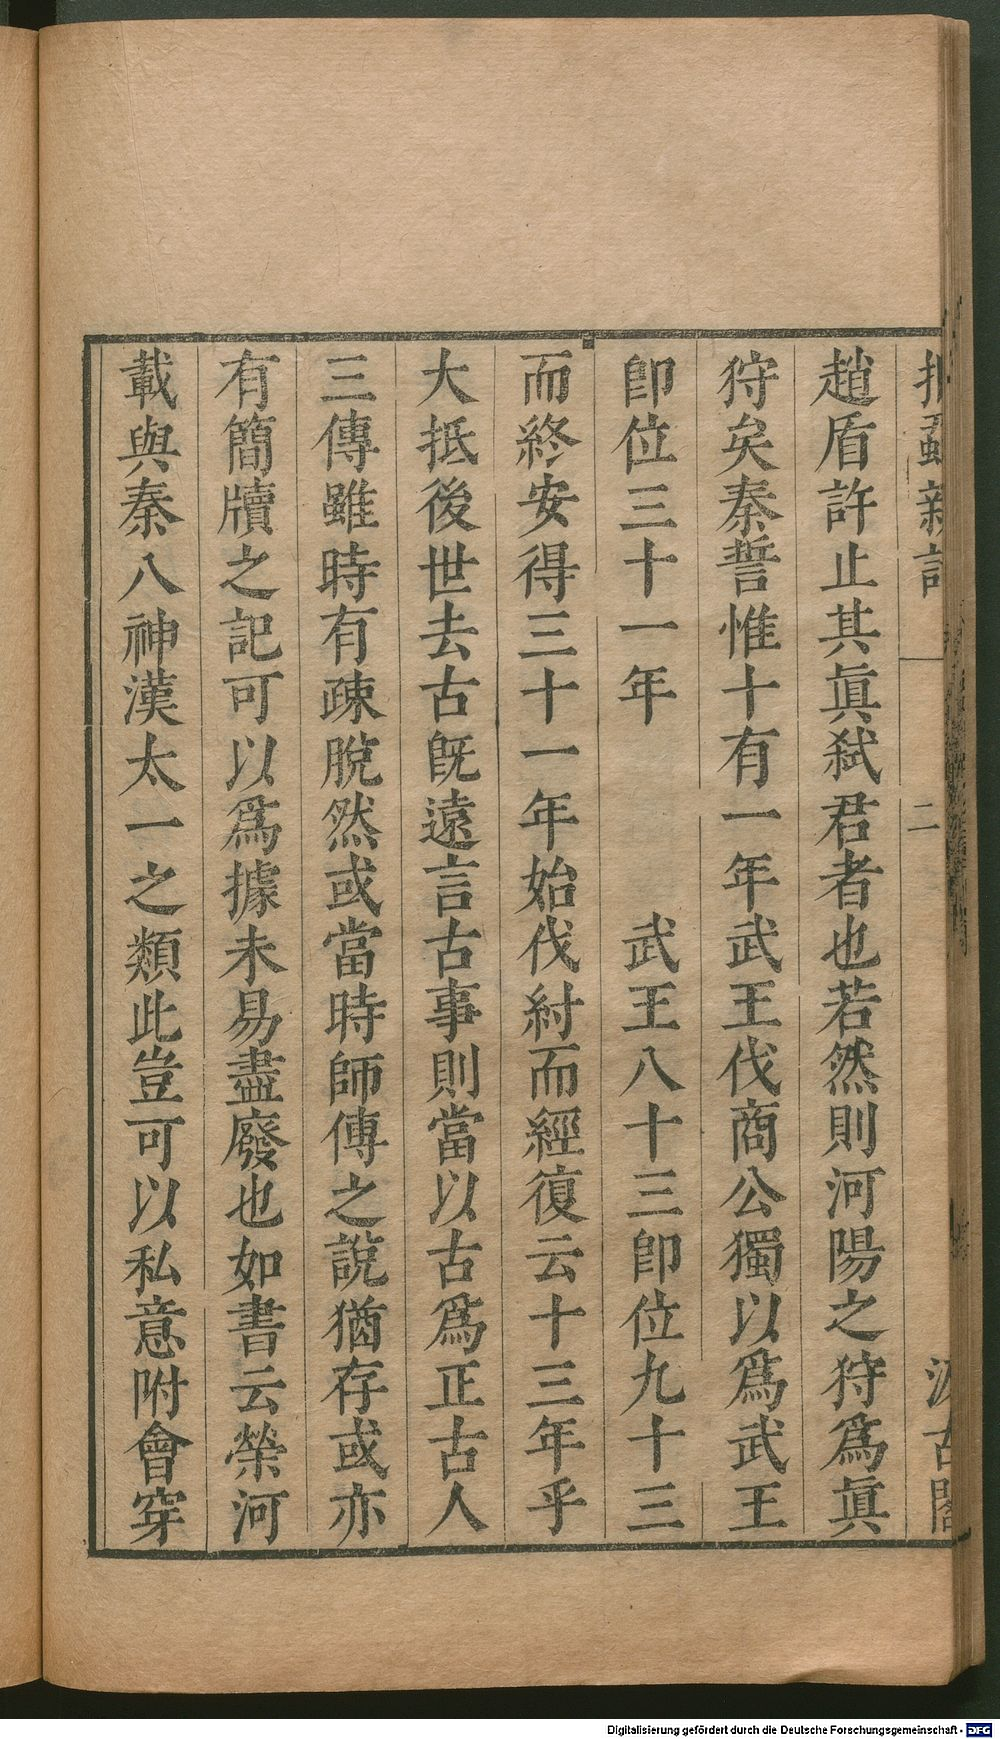 捫蝨新話
二
汲古閣
趙盾許止其眞弑君者也若然則河陽之狩爲眞
狩矣秦誓惟十有一年武王伐商公獨以爲武王
卽位三十一年 武王八十三卽位九十三
而終安得三十一年始伐紂而經復云十三年乎
大抵後世去古旣遠言古事則當以古爲正古人
三傳雖時有疎脫然或當時師傳之說猶存或亦
有簡牘之記可以爲據未易盡廢也如書云榮河
載與秦八神漢太一之類此豈可以私意附會穿
Digitalisierung gefördert durch die Deutsche Forschungsgemeinschaft - DFG